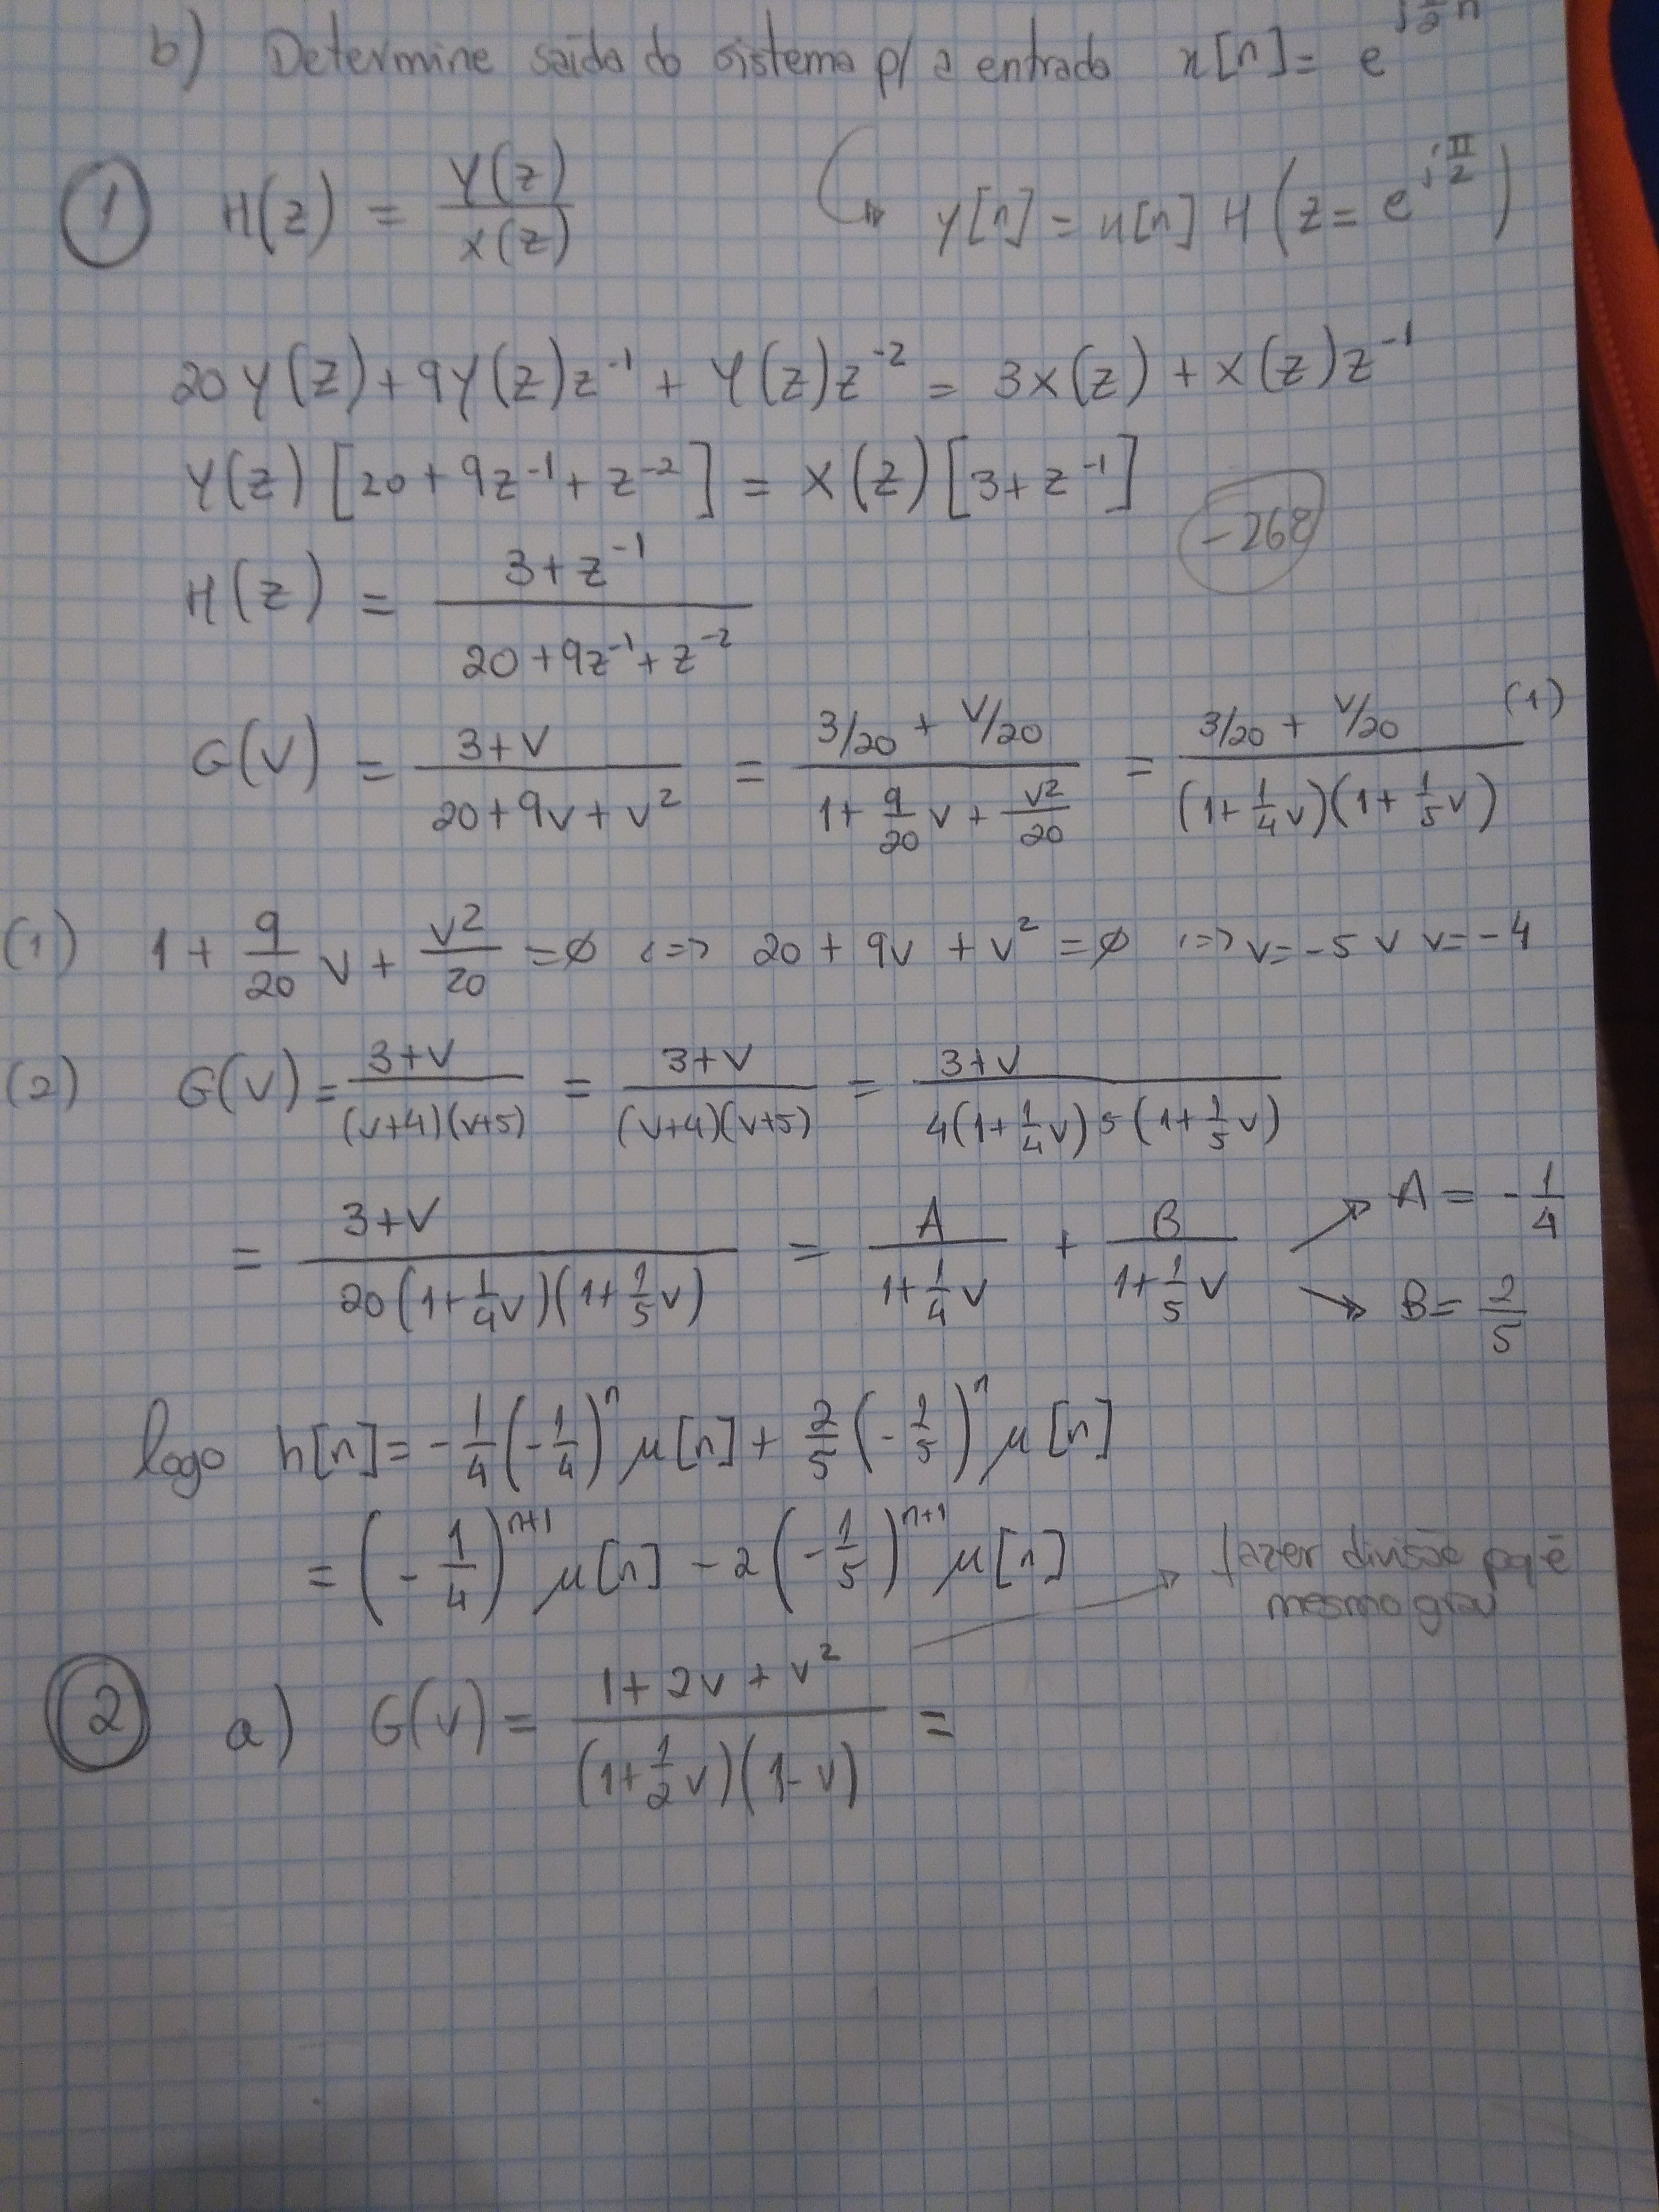 b) Determine saída do sistema p/ a entrada x[n] = e^{j\frac{π}{2}n}
① H(z) = \frac{Y(z)}{X(z)} ↳ y[n] = x[n] H(z = e^{j\frac{π}{2}})
20Y(z) + 9Y(z)z^{-1} + Y(z)z^{-2} = 3X(z) + X(z)z^{-1}
Y(z)[20 + 9z^{-1} + z^{-2}] = X(z)[3 + z^{-1}]
-268
H(z) = \frac{3 + z^{-1}}{20 + 9z^{-1} + z^{-2}}
G(v) = \frac{3+v}{20+9v+v^2} = \frac{3/20 + v/20}{1 + \frac{9}{20}v + \frac{v^2}{20}} = \frac{3/20 + v/20}{(1+\frac{1}{4}v)(1+\frac{1}{5}v)} (1)
(1) 1 + \frac{9}{20}v + \frac{v^2}{20} = ∅ <=> 20 + 9v + v^2 = ∅ <=> v = -5 ∨ v = -4
(2) G(v) = \frac{3+v}{(v+4)(v+5)} = \frac{3+v}{(v+4)(v+5)} = \frac{3+v}{4(1+\frac{1}{4}v)5(1+\frac{1}{5}v)}
= \frac{3+v}{20(1+\frac{1}{4}v)(1+\frac{1}{5}v)} = \frac{A}{1+\frac{1}{4}v} + \frac{B}{1+\frac{1}{5}v} → A = -\frac{1}{4}
→ B = \frac{2}{5}
logo h[n] = -\frac{1}{4}(-\frac{1}{4})^n μ[n] + \frac{2}{5}(-\frac{1}{5})^n μ[n]
= (-\frac{1}{4})^{n+1} μ[n] - 2(-\frac{1}{5})^{n+1} μ[n]
→ fazer divisão pq é
mesmo grau
② a) G(v) = \frac{1+2v+v^2}{(1+\frac{1}{2}v)(1-v)} =